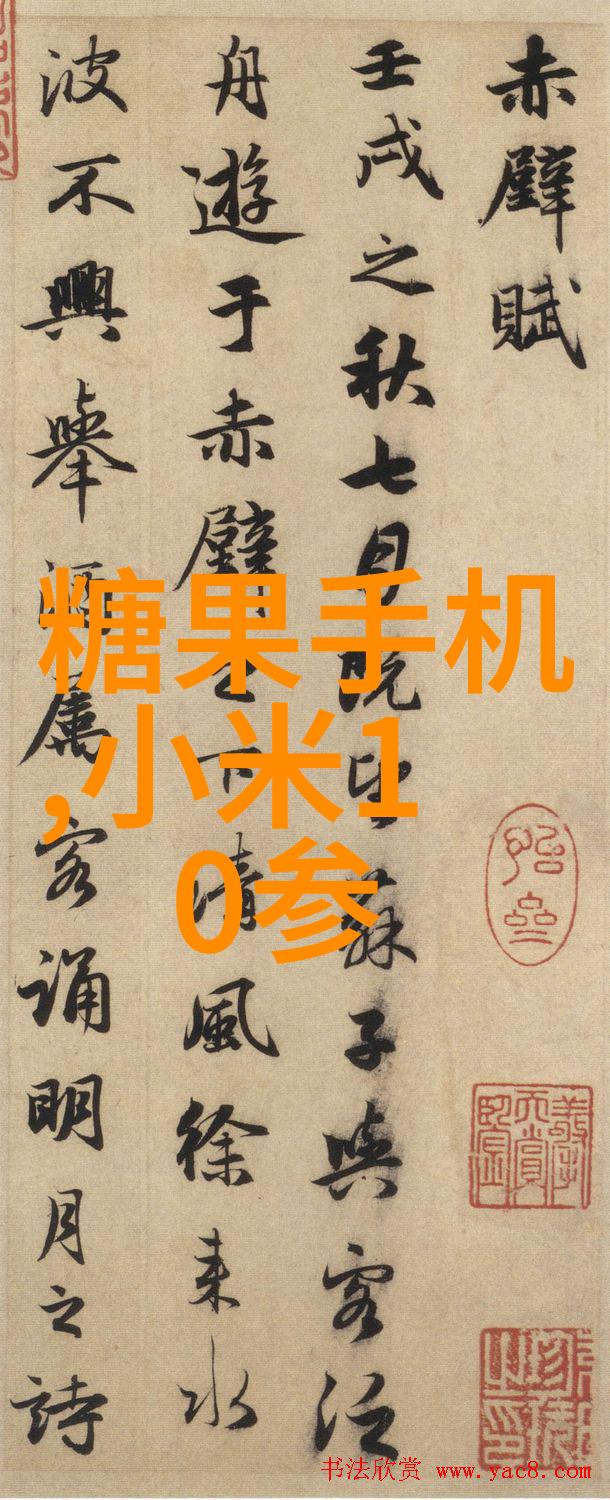 赤壁賦
壬戌之秋七月既望蘇子與客泛
舟遊于赤壁之下清風徐来水
波不興舉酒屬客誦明月之詩
糖果手机
,小米1
0参
书法欣赏 www.yac8.com